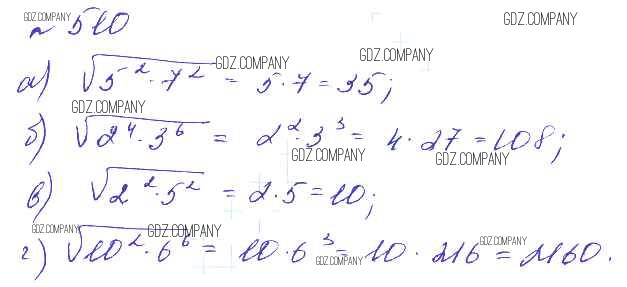 GDZ.COMPANY
№ 510
GDZ.COMPANY
GDZ.COMPANY
GDZ.COMPANY
а) √5² · 7² = 5 · 7 = 35;
GDZ.COMPANY
б) √2⁴ · 3⁶ = 2² · 3³ = 4 · 27 = 108;
GDZ.COMPANY
GDZ.COMPANY
в) √2² · 5² = 2 · 5 = 10;
GDZ.COMPANY
GDZ.COMPANY
GDZ.COMPANY
г) √10² · 6⁶ = 10 · 6³ = 10 · 216 = 2160.
GDZ.COMPANY